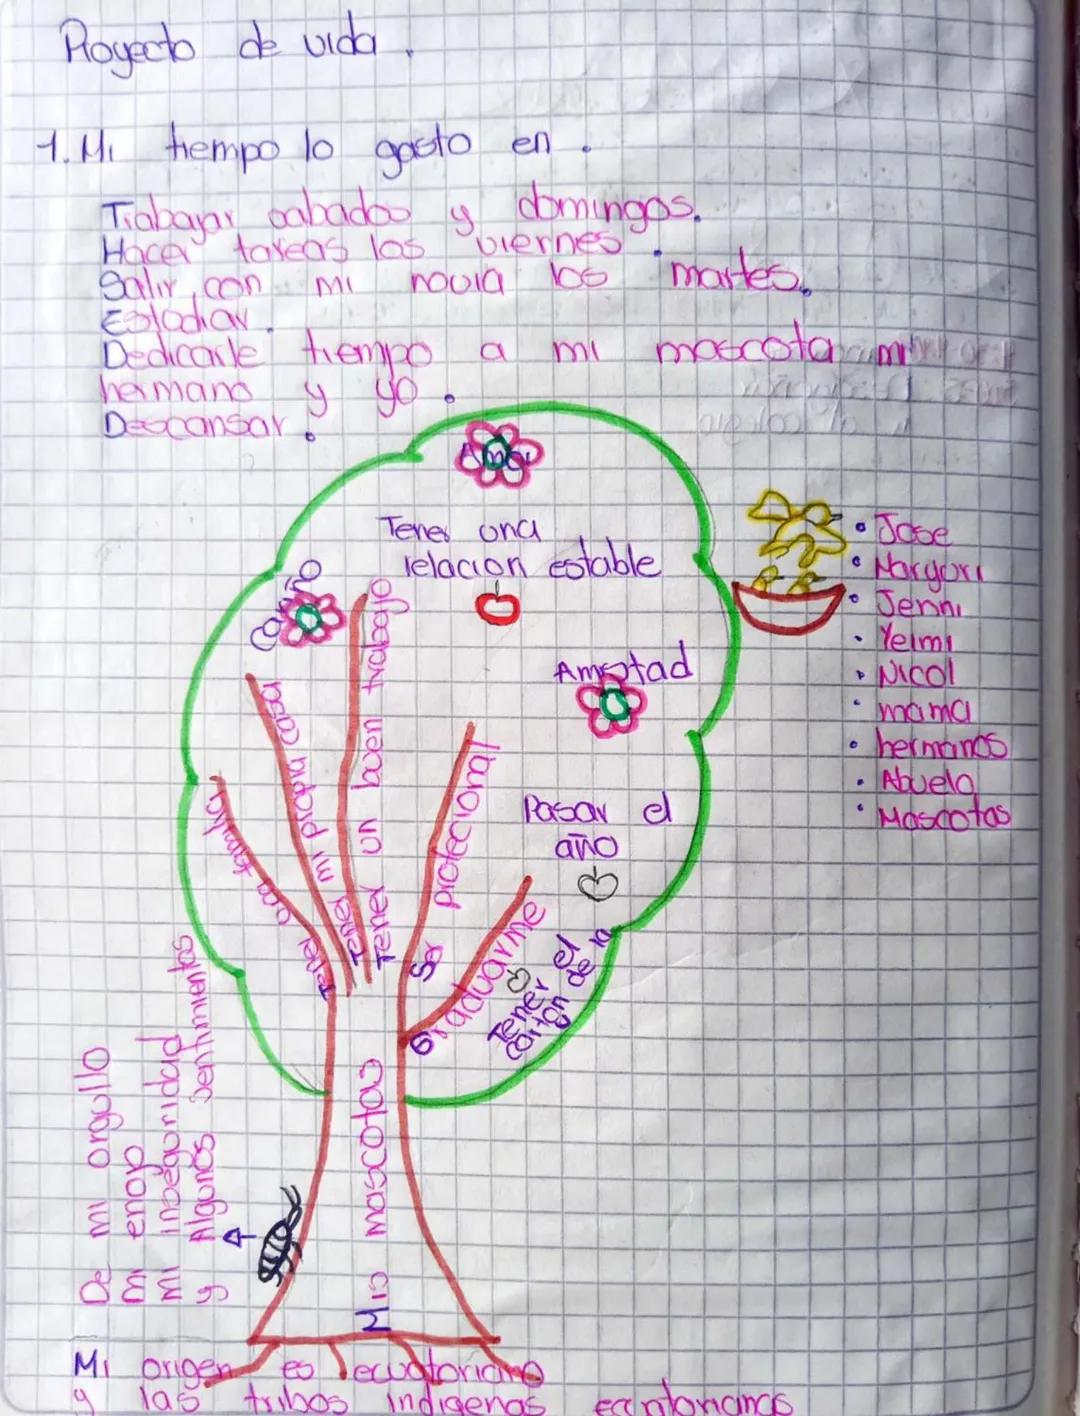 Proyecto de vida.
1. Mi tiempo lo gasto en.
Trabajar sabados y domingos.
Hacer tareas los viernes.
Salir con mi novia los martes.
Estudiar.
Dedicarle tiempo a mi mascota mi
hermano y yo.
Descansar.
Amor
Tener una
relacion estable
Cariño
Amistad
Pasar el
año
Tener el
carton de la
Tener una familia
Tener mi propia casa
Tener un buen trabajo
Ser profecional
Graduarme
• Jose
• Maryori
• Jenni
• Yeimi
• Nicol
• mama
• hermanos
• Abuela
• Mascotas
De mi orgullo
mi enojo
mi inseguridad
y Algunos sentimientos
Mis mascotas
Mi origen es ecuatoriano
y las tribos indigenas